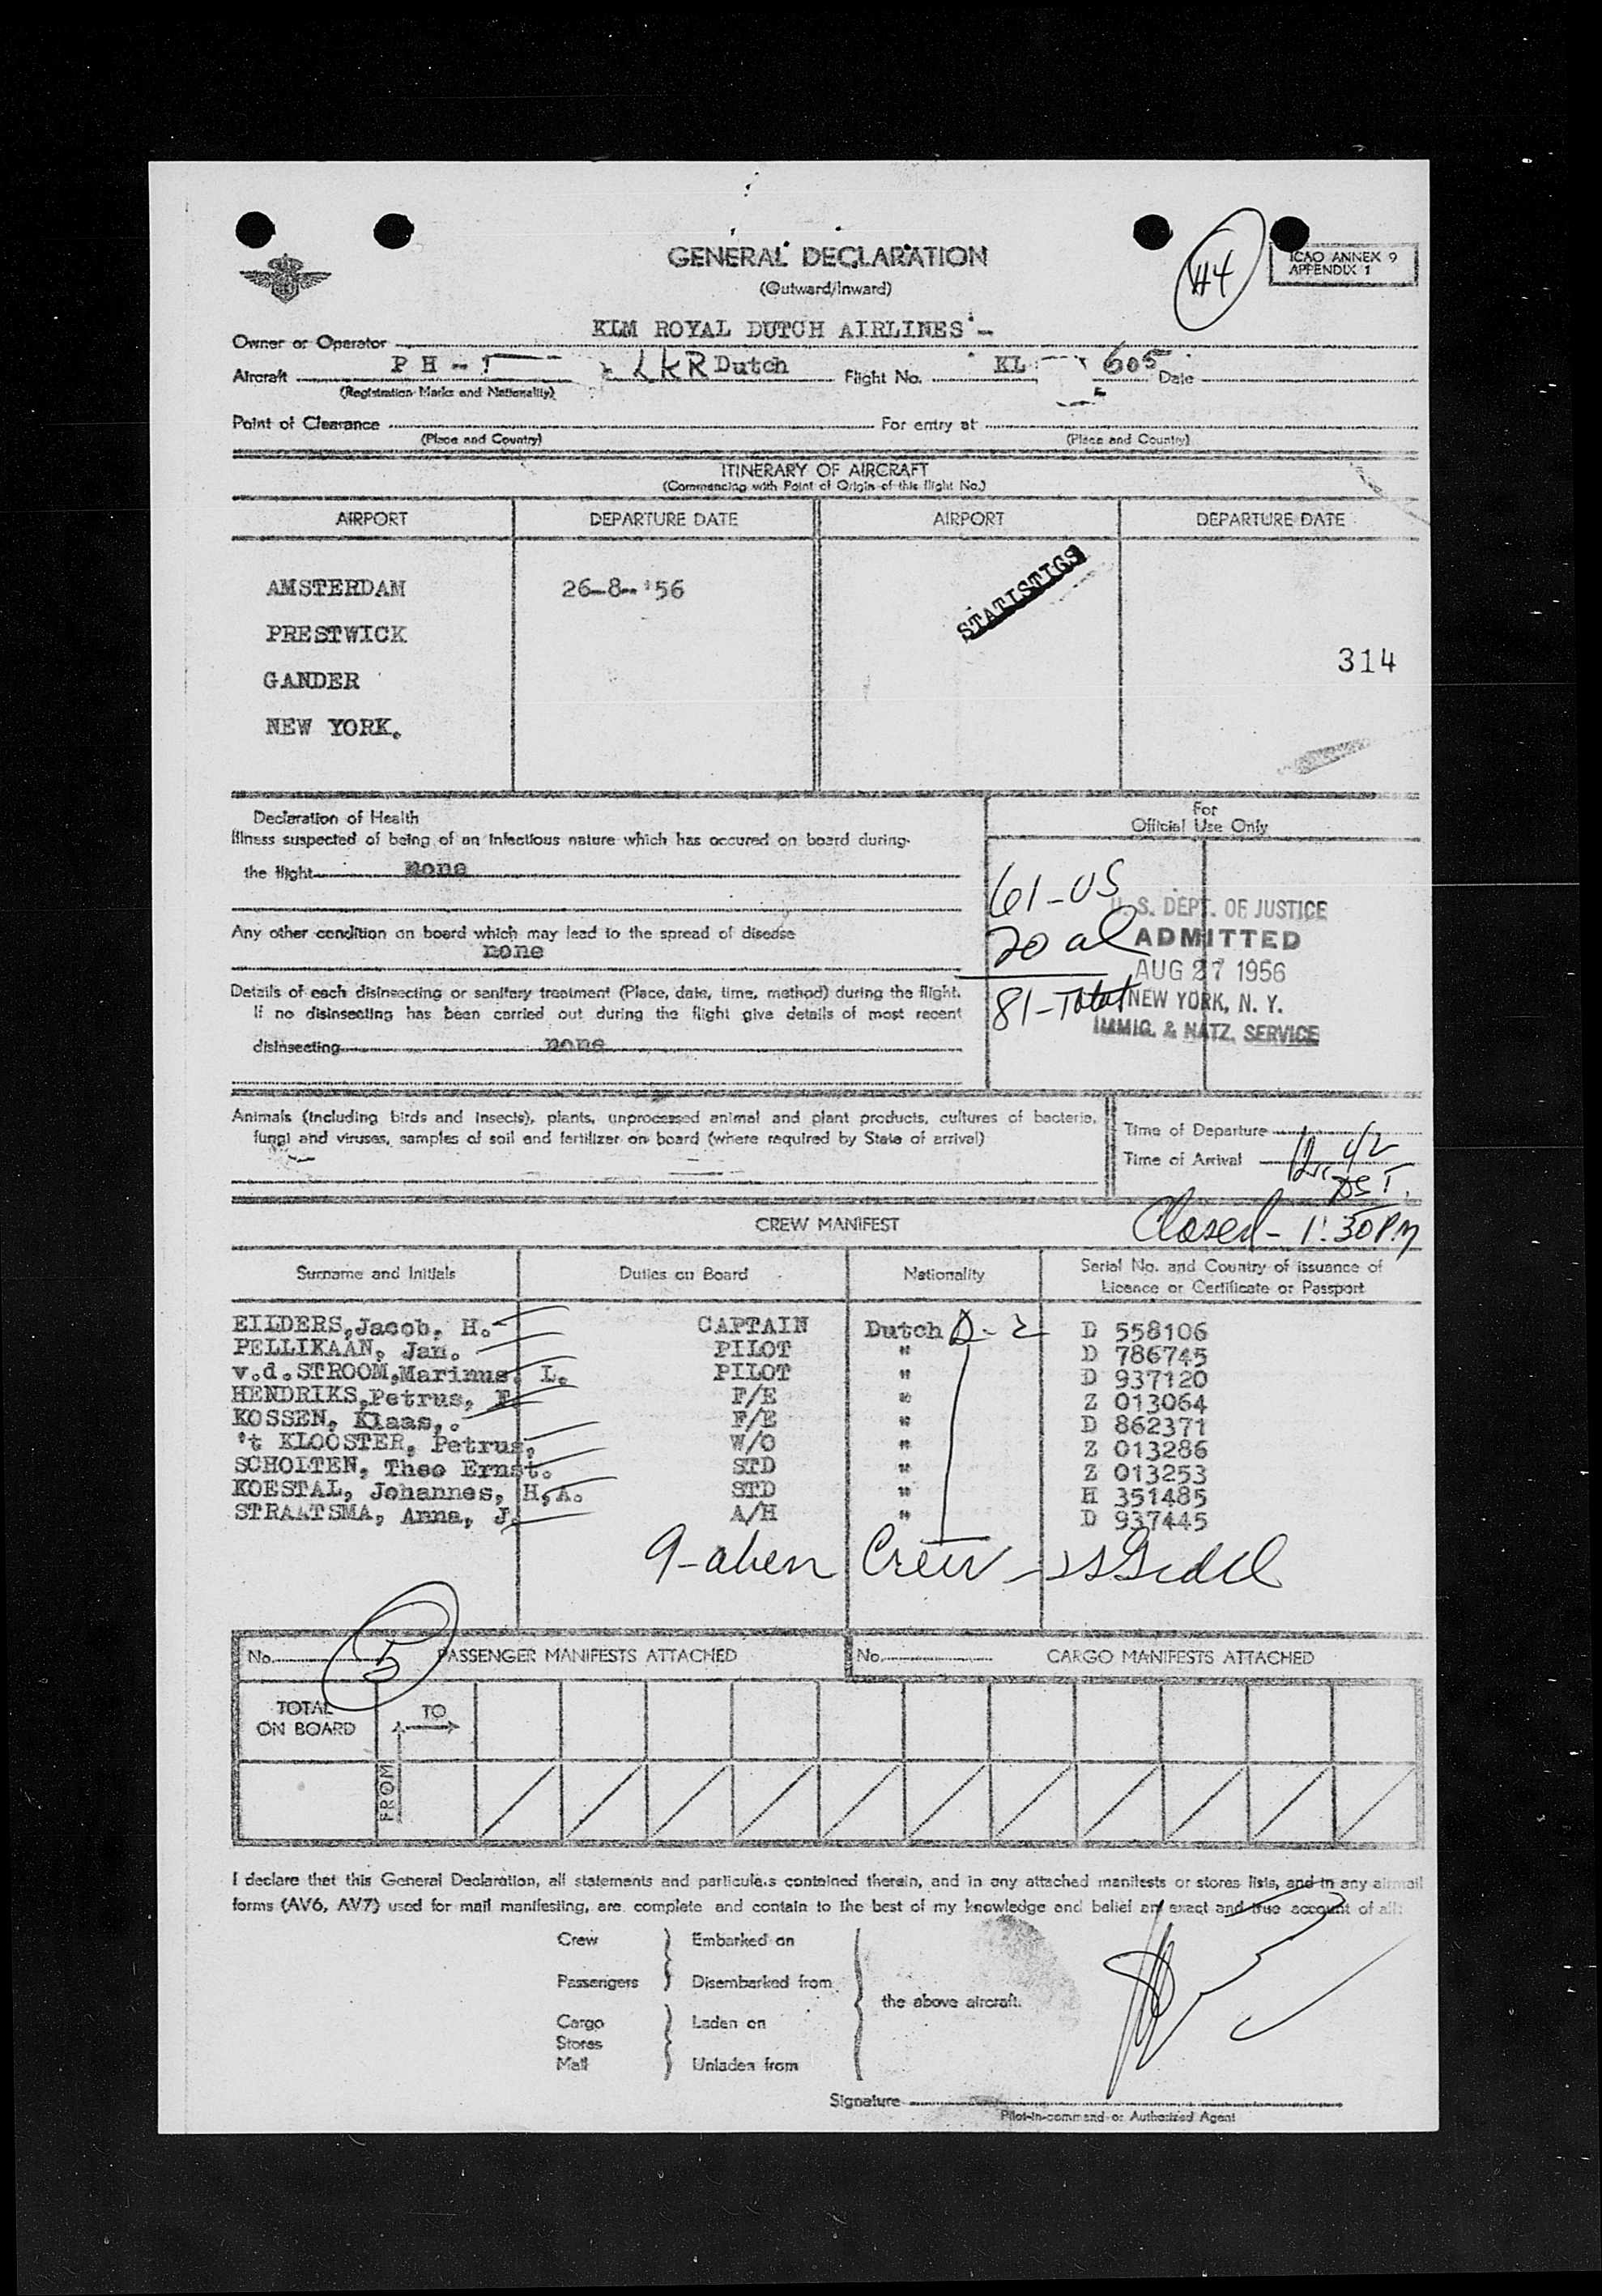 GENERAL DECLARATION
(Outward/Inward)
H4
ICAO ANNEX 9
APPENDIX 1
Owner or Operator KLM ROYAL DUTCH AIRLINES -
Aircraft PH - LKR Dutch Flight No. KL 605 Date
(Registration Marks and Nationality)
Point of Clearance For entry at
(Place and Country) (Place and Country)
ITINERARY OF AIRCRAFT
(Commencing with Point of Origin of this flight No.)
AIRPORT DEPARTURE DATE AIRPORT DEPARTURE DATE
AMSTERDAM 26-8-'56
STATISTICS
PRESTWICK
314
GANDER
NEW YORK.
Declaration of Health
Illness suspected of being of an infectious nature which has occured on board during
the flight none
Any other condition on board which may lead to the spread of disease
none
Details of each disinsecting or sanitary treatment (Place, date, time, method) during the flight.
If no disinsecting has been carried out during the flight give details of most recent
disinsecting none
For
Official Use Only
61-US
20 al
81-Total
U. S. DEPT. OF JUSTICE
ADMITTED
AUG 27 1956
NEW YORK, N. Y.
IMMIG. & NATZ. SERVICE
Animals (including birds and insects), plants, unprocessed animal and plant products, cultures of bacteria,
fungi and viruses, samples of soil and fertilizer on board (where required by State of arrival)
Time of Departure
Time of Arrival 12:42
DST.
Closed - 1:30 P.M
CREW MANIFEST
Surname and Initials Duties on Board Nationality Serial No. and Country of issuance of
Licence or Certificate or Passport
EILDERS,Jacob, H. CAPTAIN Dutch D-2 D 558106
PELLIKAAN, Jan. PILOT " D 786745
v.d.STROOM,Marinus, L. PILOT " D 937120
HENDRIKS,Petrus, F. F/E " Z 013064
KOSSEN, Klaas,. F/E " D 862371
't KLOOSTER, Petrus, W/O " Z 013286
SCHOLTEN, Theo Ernst. STD " Z 013253
KOESTAL, Johannes, H,A. STD " H 351485
STRAATSMA, Anna, J. A/H " D 937445
9-alien Crew
No. 5 PASSENGER MANIFESTS ATTACHED No. CARGO MANIFESTS ATTACHED
TOTAL
ON BOARD
TO
FROM
I declare that this General Declaration, all statements and particulars contained therein, and in any attached manifests or stores lists, and in any airmail
forms (AV6, AV7) used for mail manifesting, are complete and contain to the best of my knowledge and belief an exact and true account of all:
Crew Embarked on
Passengers Disembarked from
the above aircraft.
Cargo Laden on
Stores
Mail Unladen from
Signature
Pilot-in-command or Authorized Agent